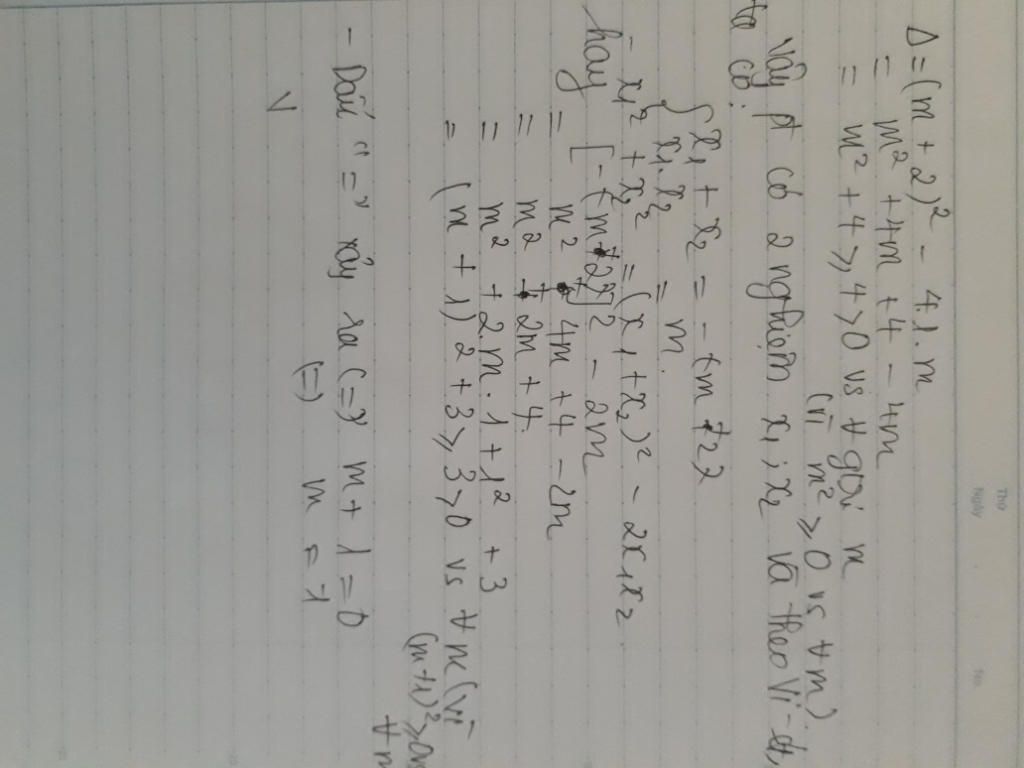 Thứ
Ngày
No.
Δ = (m + 2)² - 4.1.m
= m² + 4m + 4 - 4m
= m² + 4 ≥ 4 > 0 vs ∀ giá m
(vì m² ≥ 0 vs ∀m)
Vậy pt có 2 nghiệm x₁; x₂ và theo Vi-ét,
ta có:
{ x₁ + x₂ = -(m + 2)
x₁.x₂ = m.
- x₁² + x₂² = (x₁ + x₂)² - 2x₁x₂
hay [-(m + 2)]² - 2m
= m² + 4m + 4 - 2m
= m² + 2m + 4.
= m² + 2.m.1 + 1² + 3
= (m + 1)² + 3 ≥ 3 > 0 vs ∀m (vì
(m+1)² ≥ 0 vs
∀m
- Dấu "=" xảy ra (=) m + 1 = 0
(=) m = -1
V